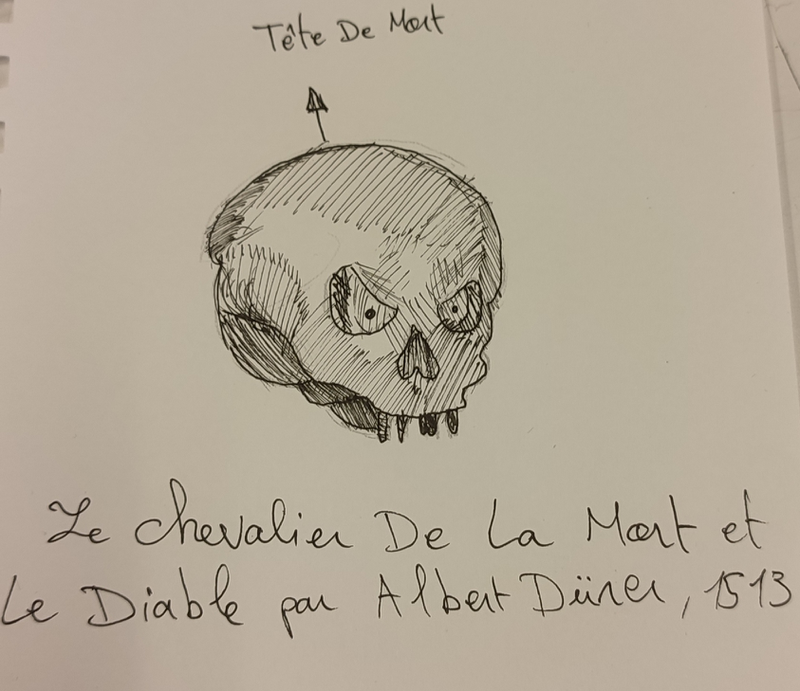 Tête De Mort
Le chevalier De La Mort et
Le Diable par Albert Dürer, 1513